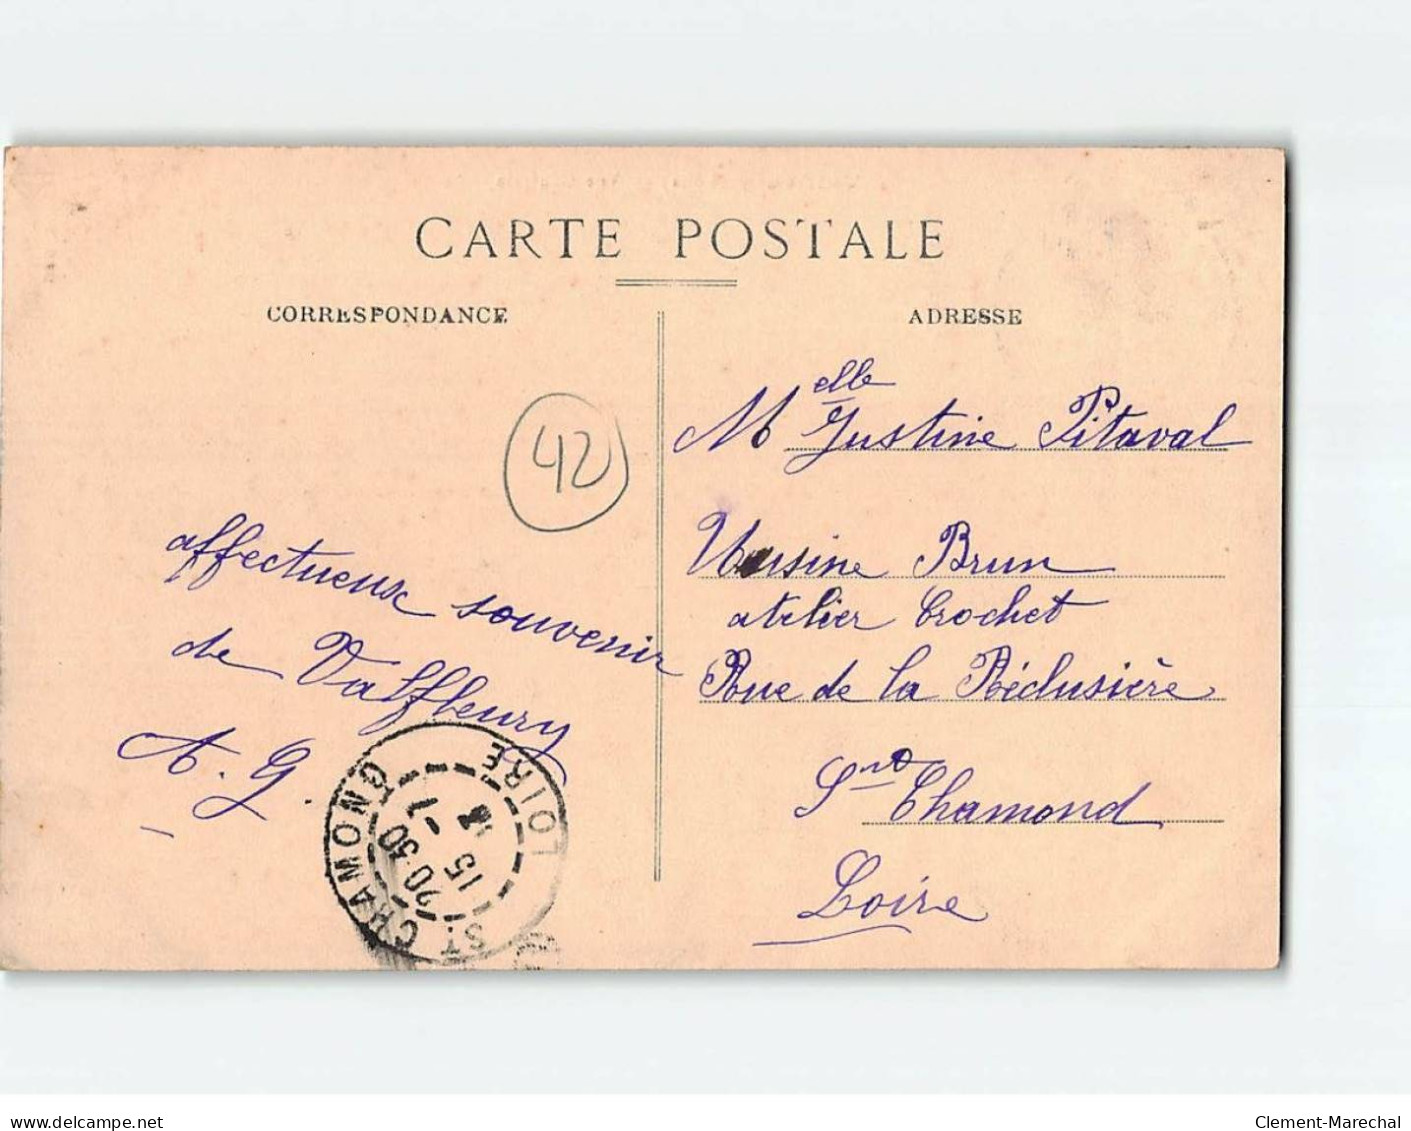 CARTE POSTALE
CORRESPONDANCE
ADRESSE
42
affectueux souvenir
de Valfleury
A. G.
Melle Justine Pitaval
Uusine Brun
atelier Crochet
Rue de la Réclusière
Chamond
Loire
ST. CHAMOND LOIRE
20 30
15 - 7
delcampe.net
Clement-Marechal